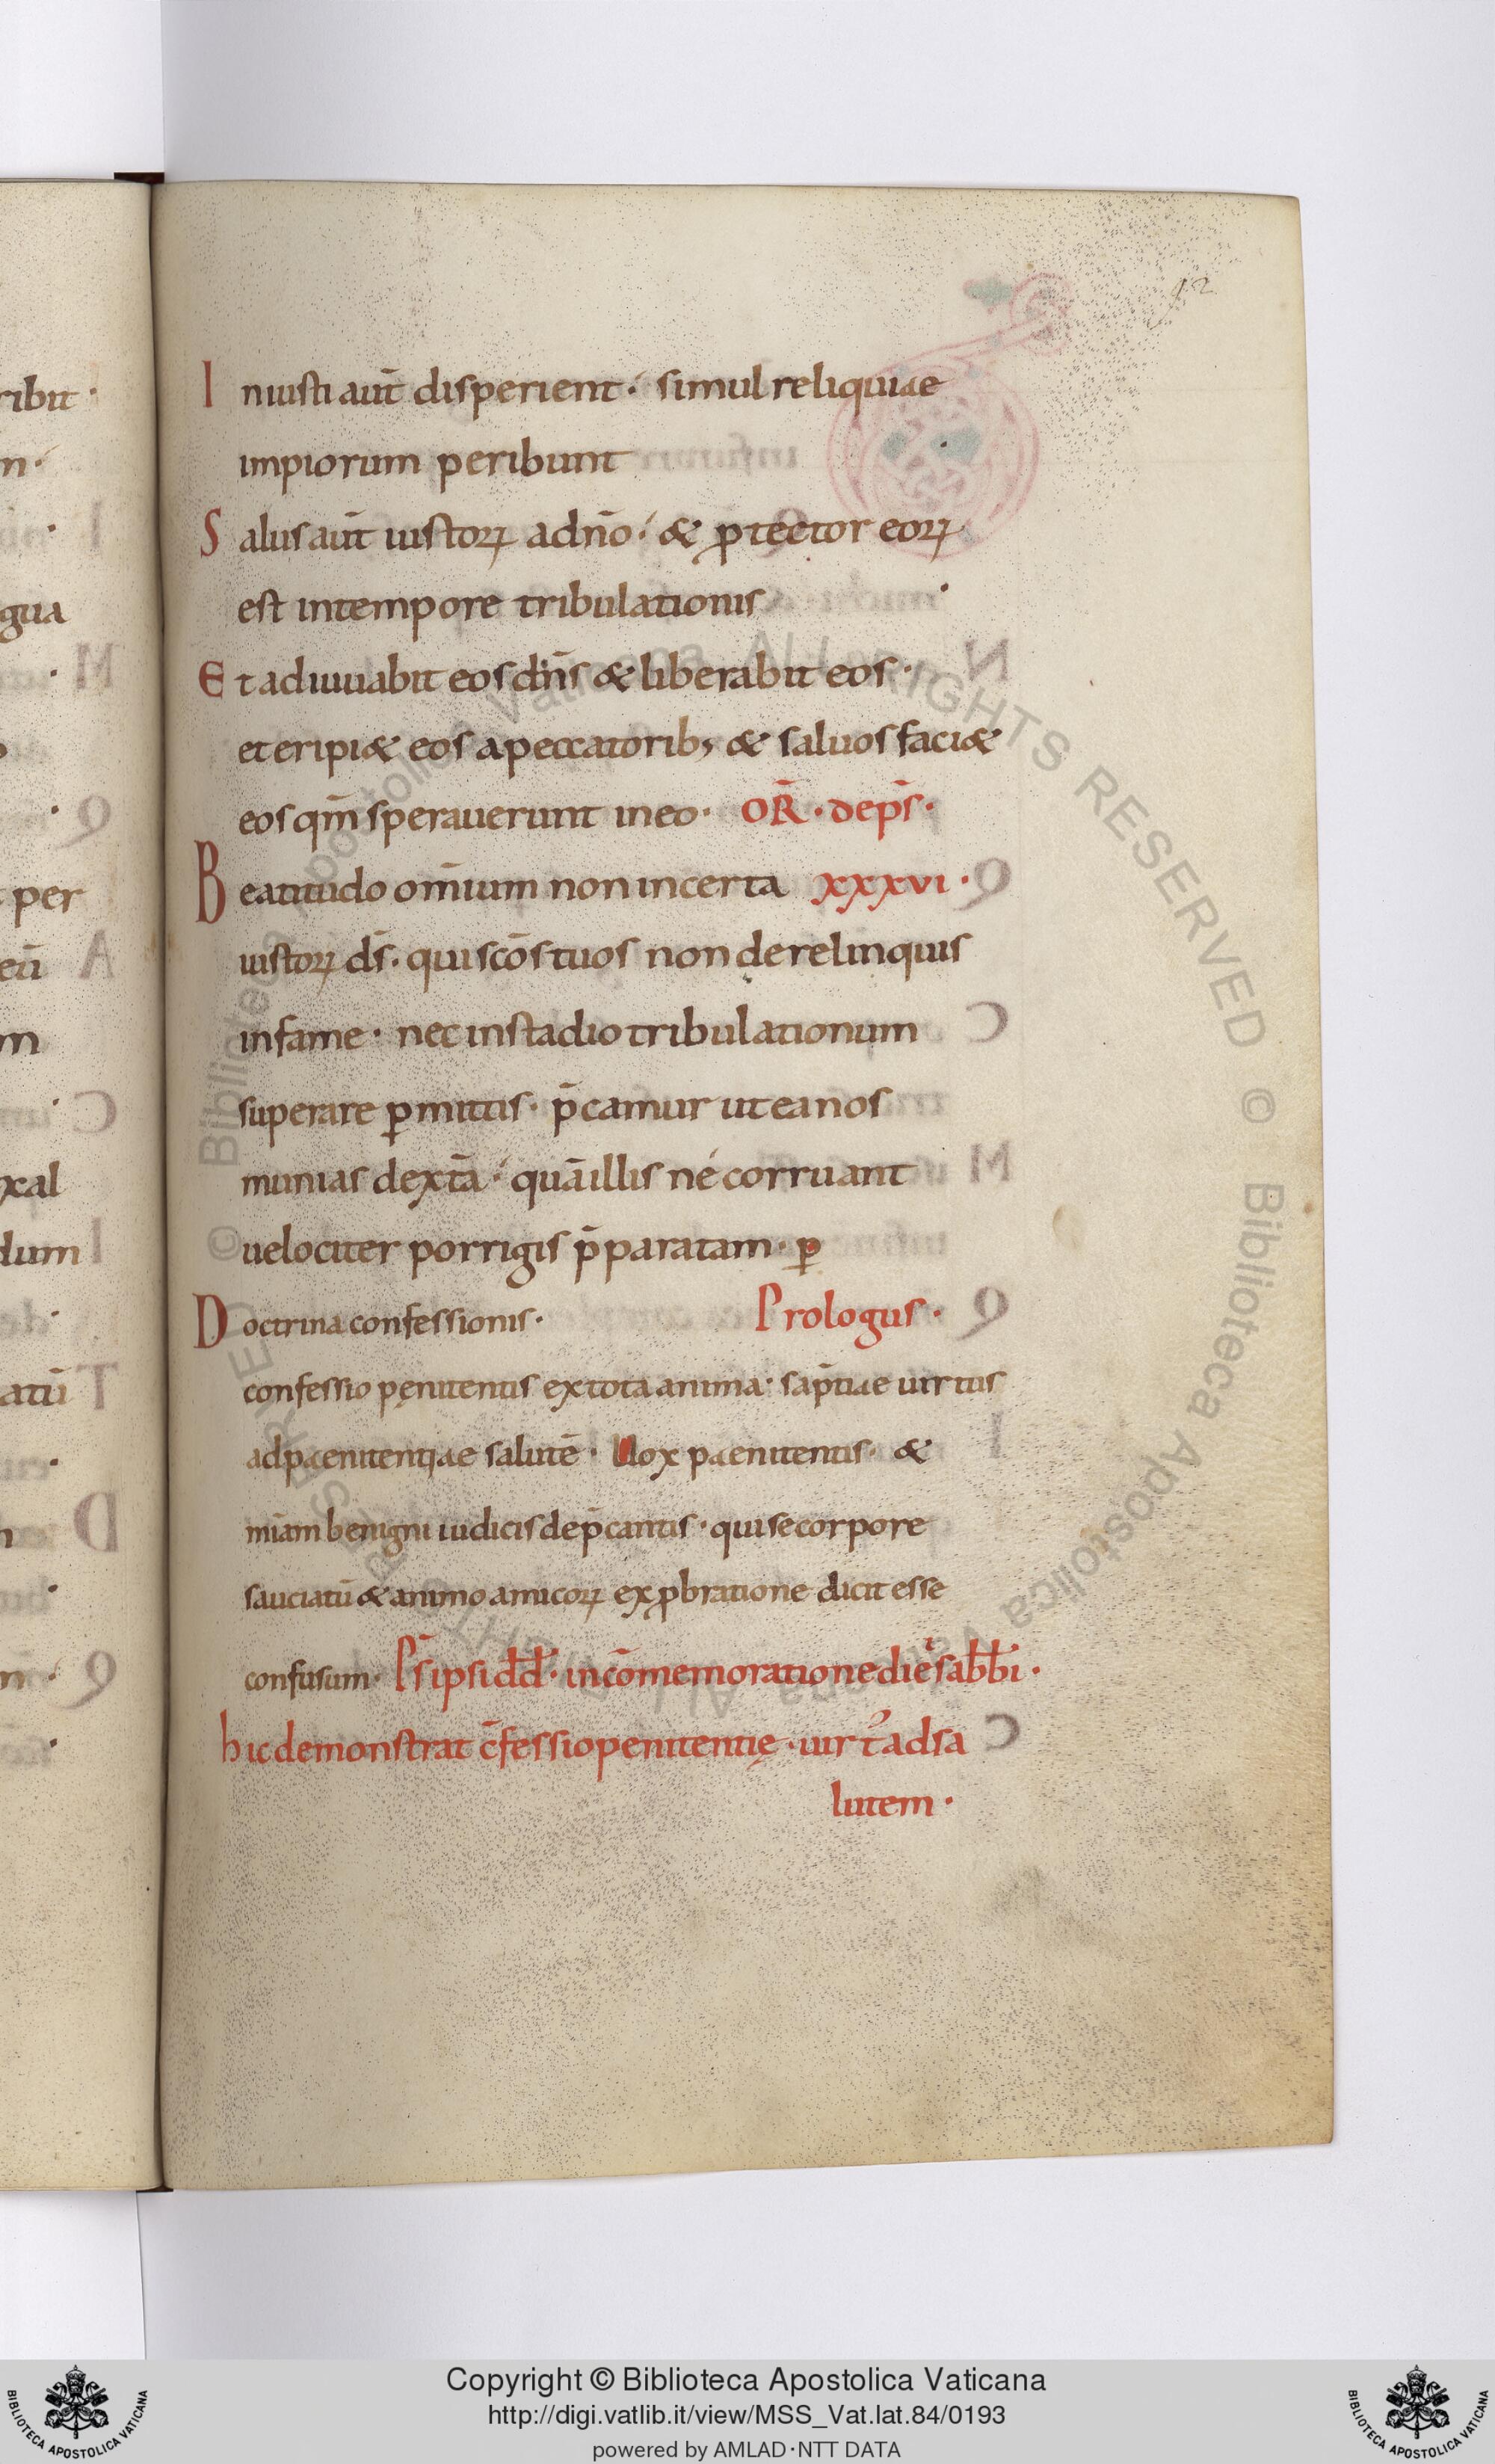 92
Iniusti aut̄ disperient· simul reliquiae
impiorum peribunt
Salus aut̄ iustoꝝ adn̄o· & ꝓtector eoꝝ
est intempore tribulationis
Et adiuuabit eos dn̄s & liberabit eos·
et eripi& eos apeccatorib; & saluos faci&
eos qm̄ sperauerunt ineo· OR̄· dep̄s·
Beatitudo om̄ium non incerta xxxvi·
iustoꝝ ds̄· qui scōs tuos non derelinquis
infame· nec instadio tribulationum
superare ꝑmittis· p̄camur ut ea nos
munias dext̄a· quā illis né corruant
uelociter porrigis p̄paratam· ꝑ
Doctrina confessionis· Prologus·
confessio pęnitentis ex tota anima· sap̄tiae uirtus
adpaenitentiae salutē· Uox paenitentis· &
miam̄ benigni iudicis dep̄cantis· qui se corpore
sauciatū & animo amicoꝝ exꝓbratione dicit esse
confusum· Ps̄ ipsi dd̄· incōmemoratione diei sabb̄i·
hic demonstrat c̄fessio penitentię· uirt᷒ adsa
lutem·
ribit·
n·
gua
per
eū
m
xal
dum
atū
n·
Copyright © Biblioteca Apostolica Vaticana
http://digi.vatlib.it/view/MSS_Vat.lat.84/0193
powered by AMLAD·NTT DATA
BIBLIOTECA APOSTOLICA VATICANA
BIBLIOTECA APOSTOLICA VATICANA